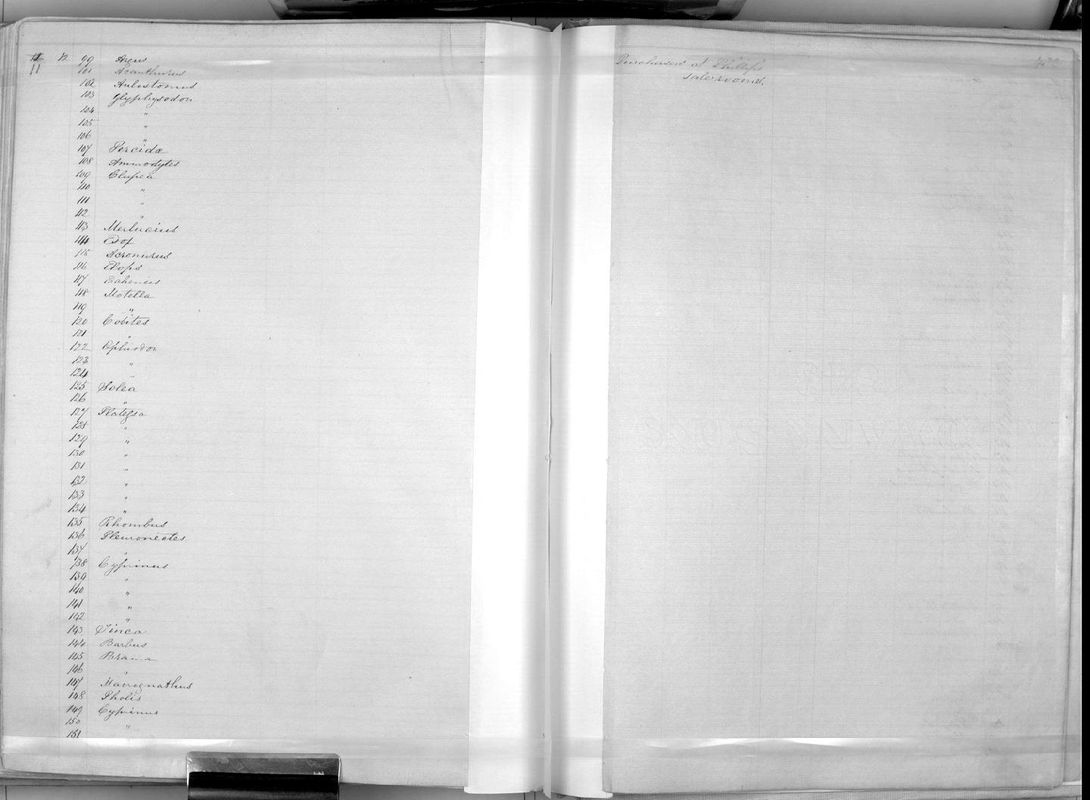 11 12 99 Argus
101 Acanthurus
102 Aulostomus
103 Glyphysodon
104 "
105 "
106 "
107 Percidæ
108 Ammodytes
109 Clupea
110 "
111 "
112 "
113 Merlucius
114 Esox
115 Acronurus
116 Elops
117
118 Motella
119 "
120 Cobites
121 "
122
123 "
124 "
125 Solea
126 "
127 Platessa
128 "
129 "
130 "
131 "
132 "
133 "
134 "
135 Rhombus
136 Pleuronectes
137 "
138 Cyprinus
139 "
140 "
141 "
142 "
143 Tinca
144 Barbus
145 Brama
146 "
147
148 Pholis
149 Cyprinus
150 "
151
Purchased at Phillips
sale rooms.